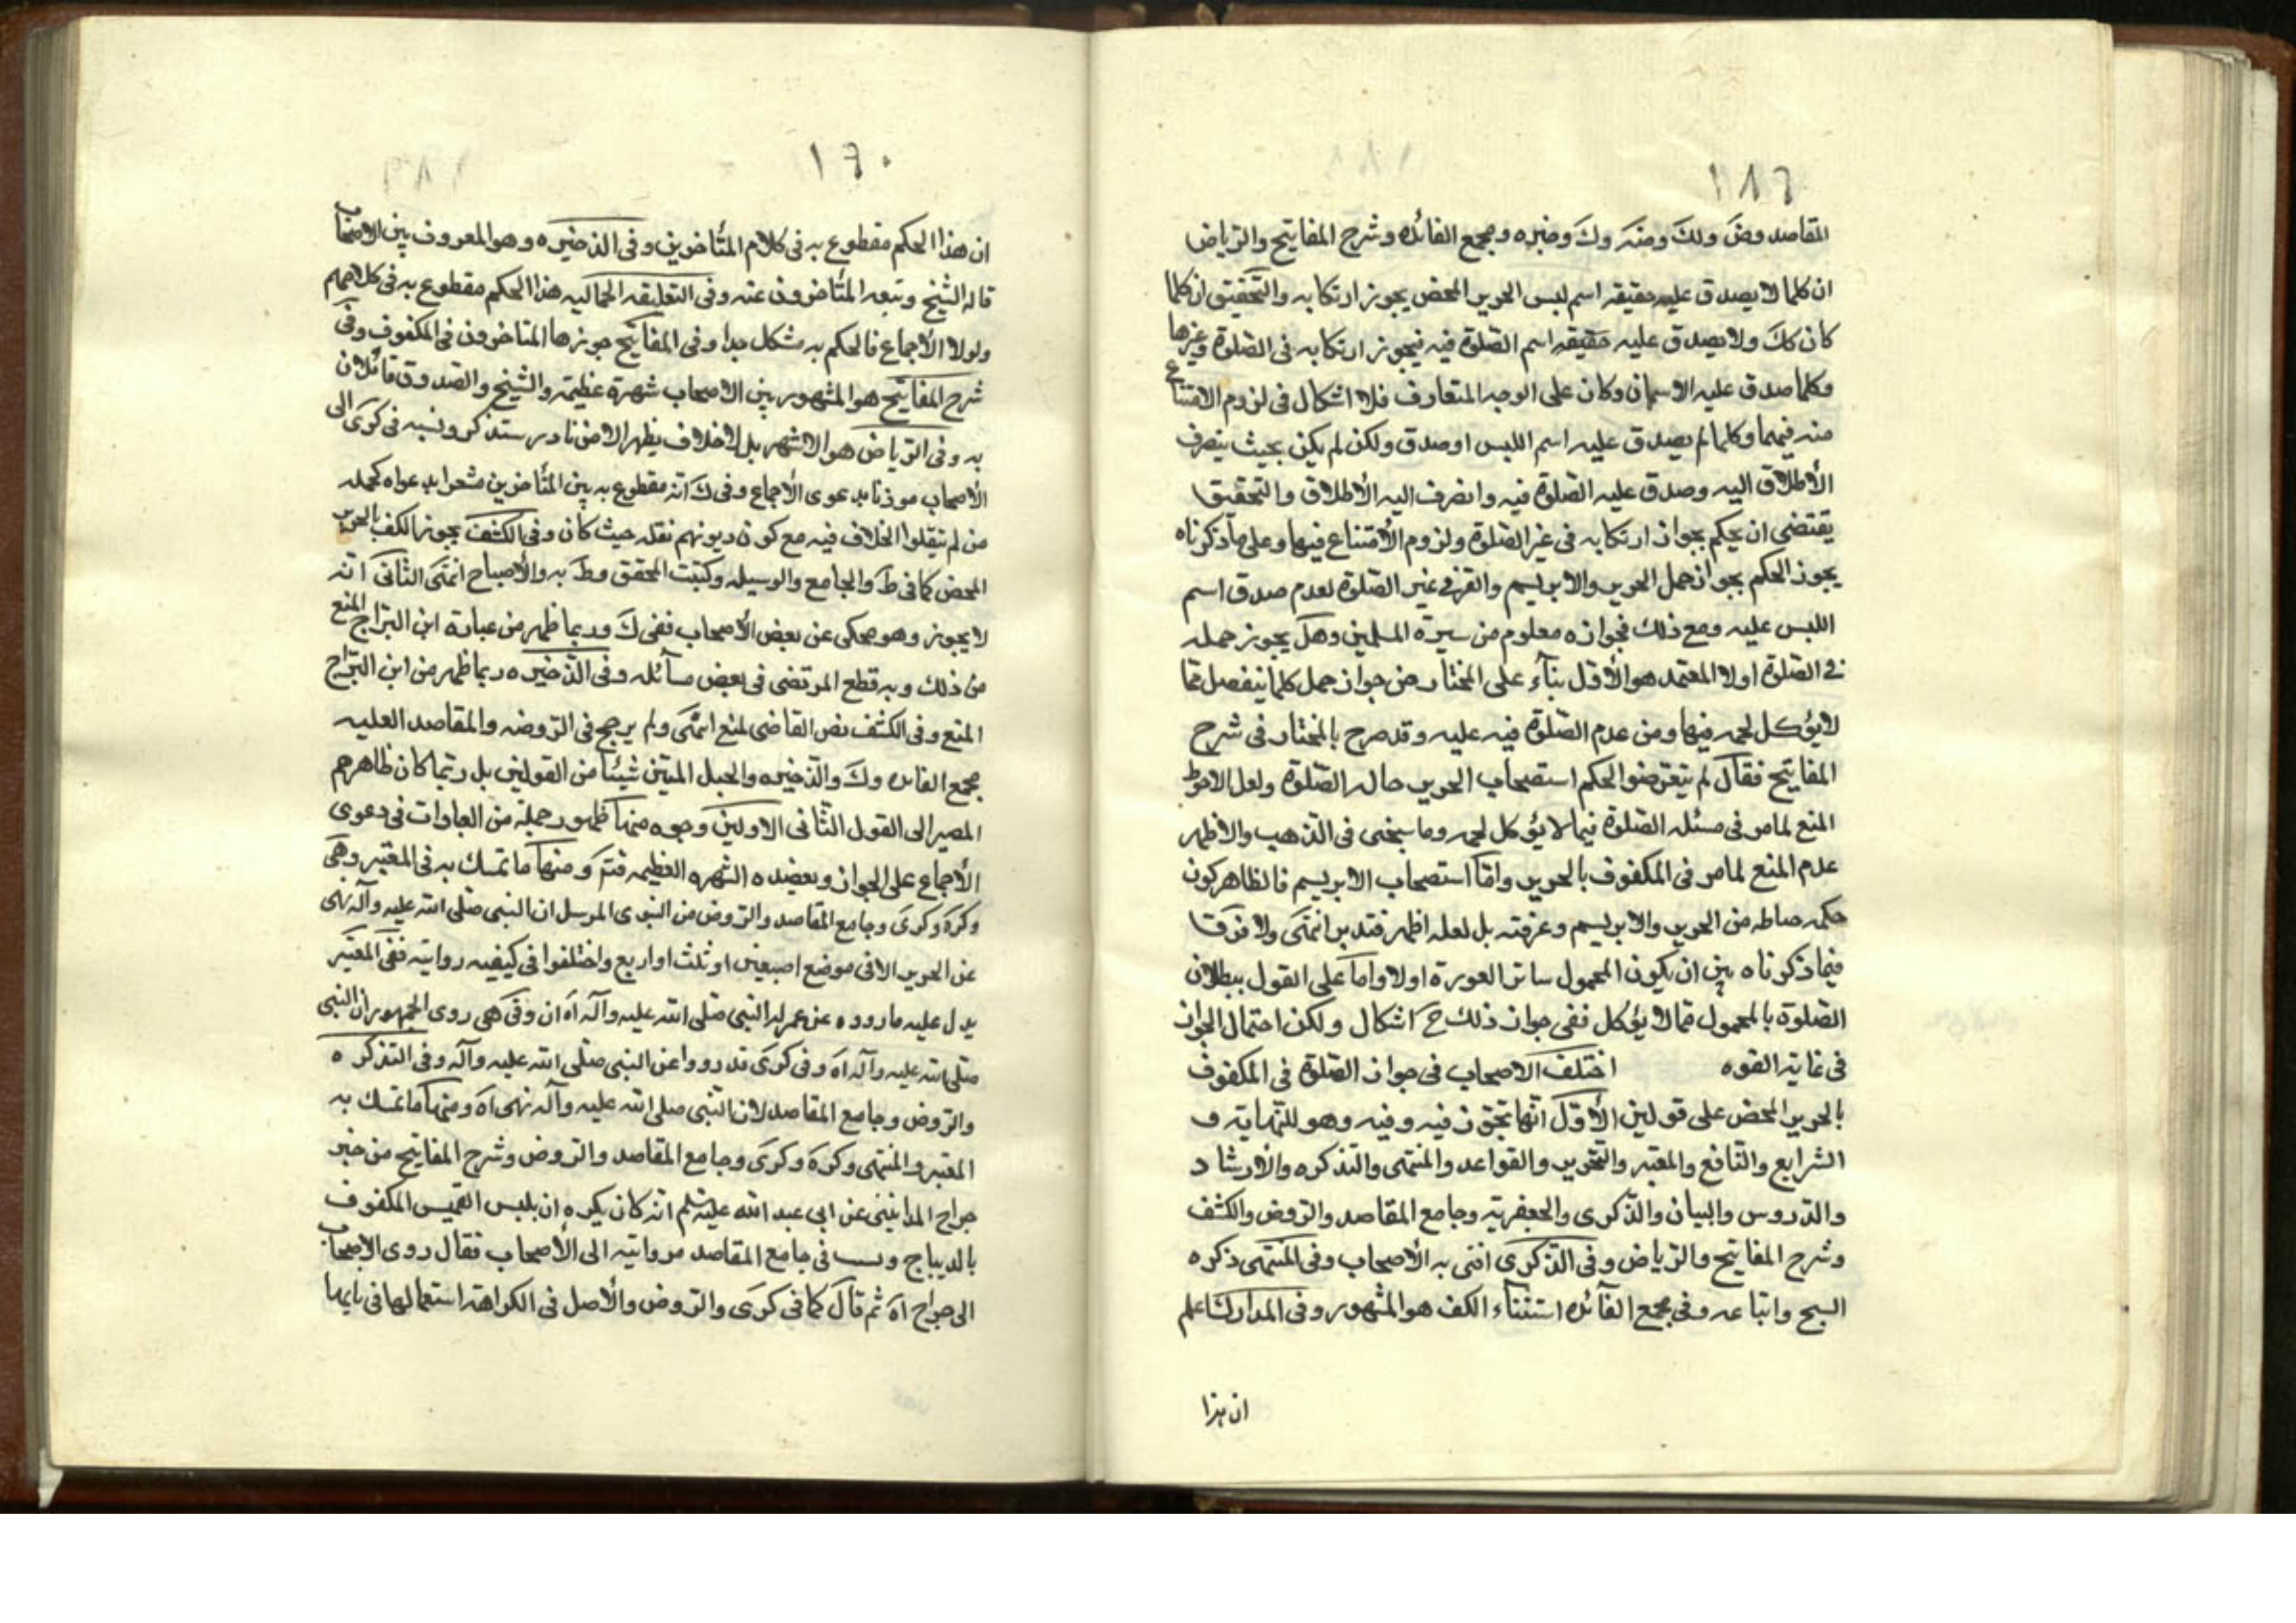 المقاصد وض ولك ومنه وك وخيره ومجمع الفائده وشرح المفاتيح والرياض
ان كلما لا يصدق عليه حقيقه اسم لبس الحرير المحض يجوز ارتكابه والتحقيق ان كلما
كان كك ولا يصدق عليه حقيقه اسم الصلوة فيه فيجوز ارتكابه فى الصلوة وغيرها
وكلما صدق عليه الاسمان وكان على الوجه المتعارف فلا اشكال فى لزوم الامتناع
منه فيهما وكلما لم يصدق عليه اسم اللبس او صدق ولكن لم يكن بحيث ينصرف
الأطلاق اليه وصدق عليه الصلوة فيه وانصرف اليه الأطلاق والتحقيق
يقتضى ان يحكم بجواز ارتكابه فى غير الصلوة ولزوم الأمتناع فيها وعلى ما ذكرناه
يجوز الحكم بجواز حمل الحرير والابريسم والقز فى غير الصلوة لعدم صدق اسم
اللبس عليه ومع ذلك فجوازه معلوم من سيرة المسلمين وهل يجوز حمله
فى الصلوة اولا المعتمد هو الأول بنآء على المختار من جواز حمل كلما ينفصل مما
لا يؤكل لحمه فيها ومن عدم الصلوة فيه عليه وقد صرح بالمختار فى شرح
المفاتيح فقال لم يتعرضوا لحكم استصحاب الحرير حال الصلوة ولعل الاحوط
المنع لما مر فى مسئله الصلوة فيما لا يؤكل لحمه وما سيجئ فى الذهب والاظهر
عدم المنع لما مر فى المكفوف بالحرير واما استصحاب الابريسم فالظاهر كون
حكمه من الحرير والابريسم وعرفته بل لعله اظهر فتدبر انتهى ولا فرق
فيما ذكرناه بين ان يكون المحمول ساتر العورة اولا واما على القول ببطلان
الصلوة بالمحمول مما لا يؤكل ففى جواز ذلك ح اشكال ولكن احتمال الجواز
فى غاية القوه اختلف الاصحاب فى جواز الصلوة فى المكفوف
بالحرير المحض على قولين الأول انها تجوز فيه وفيه وهو للنهاية و
الشرايع والنافع والمعتبر والتحرير والقواعد والمنتهى والتذكره والأرشاد
والدروس والبيان والذكرى والجعفرية وجامع المقاصد والروض والكشف
وشرح المفاتيح والرياض وفى الذكرى افتى به الأصحاب وفى المنتهى ذكره
الشيخ واتباعه وفى مجمع الفآئده استثنآء الكف هو المشهور وفى المدارك اعلم
ان هذا
١٢٠
ان هذا الحكم مقطوع به فى كلام المتأخرين وفى الذخيره وهو المعروف بين الاصحاب
قاله الشيخ وتبعه المتأخرون عنه وفى التعليقه الجماليه هذا الحكم مقطوع به فى كلامهم
ولولا الأجماع فالحكم به مشكل جدا وفى المفاتيح جوزها المتاخرون فى المكفوف وفى
شرح المفاتيح هو المشهور بين الاصحاب شهرة عظيمة والشيخ والصدوق قائلان
به وفى الرياض هو الاشهر بل لا خلاف يظهر الا من نادر ستذكر ونسبه فى كرى الى
الأصحاب موذنا بدعوى الأجماع وفى ك انه مقطوع به بين المتأخرين مشعرا بدعواه كجمله
من لم ينقلوا الخلاف فيه مع كون ديدنهم نقله حيث كان وفى الكشف يجوز الكف بالحرير
المحض كما فى ط والجامع والوسيله وكتب المحقق وط به والأصباح انتهى الثانى انه
لا يجوز وهو محكى عن بعض الأصحاب ففى ك وربما ظهر من عبارة ابن البراج المنع
من ذلك وبه قطع المرتضى فى بعض مسائله وفى الذخيره ربما ظهر من ابن البراج
المنع وفى الكشف نص القاضى لمنع انتهى ولم يرجح فى الروضه والمقاصد العليه
مجمع الفائده وك والذخيره والحبل المتين شيئا من القولين بل ربما كان ظاهرهم
المصير الى القول الثانى الاولين وجوه منها ظهور جملة من العبارات فى دعوى
الأجماع على الجواز ويعضده الشهره العظيمه فتم ومنها ما تمسك به فى المعتبر وهى
وكره وكرى وجامع المقاصد والروض من النبوى المرسل ان النبى صلى الله عليه وآله نهى
عن الحرير الا فى موضع اصبعين او ثلث او اربع واختلفوا فى كيفيه روايته ففى المعتبر
يدل عليه ما رووه عن عمر ان النبى صلى الله عليه وآله آه ان وفى هى روى الجمهور ان النبى
صلى الله عليه وآله آه وفى كرى قد رووا عن النبى صلى الله عليه وآله وفى التذكره
والروض وجامع المقاصد لان النبى صلى الله عليه وآله نهى آه ومنها ما تمسك به
المعتبر والمنتهى وكره وكرى وجامع المقاصد والروض وشرح المفاتيح من خبر
جراح المداينى عن ابى عبد الله عليه السلم انه كان يكره ان يلبس القميص المكفوف
بالديباج ونسب فى جامع المقاصد روايته الى الأصحاب فقال روى الاصحاب
الى جراح آه ثم قال كما فى كرى والروض والأصل فى الكراهة استعمالها فى بابها